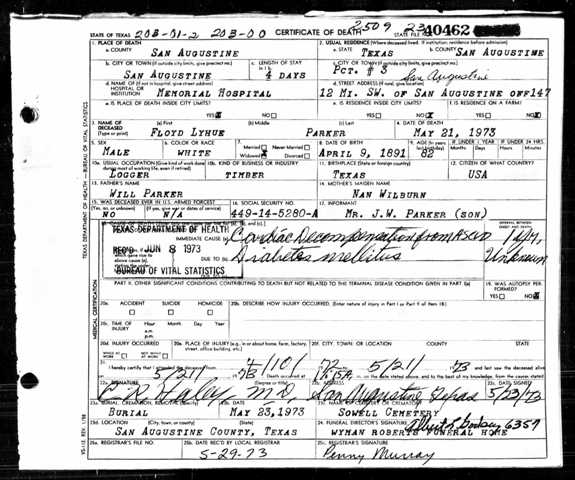 STATE OF TEXAS 203-01-2 203-00 CERTIFICATE OF DEATH 2509 STATE FILE 40462
1. PLACE OF DEATH 2. USUAL RESIDENCE (Where deceased lived. If institution, residence before admission)
a. COUNTY SAN AUGUSTINE a. STATE TEXAS b. COUNTY SAN AUGUSTINE
b. CITY OR TOWN (If outside city limits, give precinct no.) c. LENGTH OF STAY c. CITY OR TOWN (If outside city limits, give precinct no.)
SAN AUGUSTINE 4 DAYS PCT. # 3 San Augustine
d. NAME OF (If not in hospital, give street address) HOSPITAL OR INSTITUTION MEMORIAL HOSPITAL d. STREET ADDRESS (If rural, give location) 12 MI. SW. OF SAN AUGUSTINE OFF 147
e. IS PLACE OF DEATH INSIDE CITY LIMITS? YES NO e. IS RESIDENCE INSIDE CITY LIMITS? YES NO f. IS RESIDENCE ON A FARM? YES NO
3. NAME OF DECEASED (Type or print) (a) First (b) Middle (c) Last 4. DATE OF DEATH
FLOYD LYHUE PARKER MAY 21, 1973
5. SEX 6. COLOR OR RACE 7. Married Never Married 8. DATE OF BIRTH 9. AGE IF UNDER 1 YEAR IF UNDER 24 HRS.
MALE WHITE Widowed Divorced APRIL 9, 1891 82 Months Days Hours Min.
10a. USUAL OCCUPATION (Give kind of work done during most of working life, even if retired) 10b. KIND OF BUSINESS OR INDUSTRY 11. BIRTHPLACE (State or foreign country) 12. CITIZEN OF WHAT COUNTRY?
LOGGER TIMBER TEXAS USA
13. FATHER'S NAME 14. MOTHER'S MAIDEN NAME
WILL PARKER NAN WILBURN
15. WAS DECEASED EVER IN U.S. ARMED FORCES? 16. SOCIAL SECURITY NO. 17. INFORMANT
NO N/A 449-14-5280-A MR. J.W. PARKER (SON)
TEXAS DEPARTMENT OF HEALTH
IMMEDIATE CAUSE Cardiac Decompensation from ASCVD
REC'D JUN 8 1973 DUE TO Diabetes mellitus Unknown
BUREAU OF VITAL STATISTICS
PART II. OTHER SIGNIFICANT CONDITIONS CONTRIBUTING TO DEATH BUT NOT RELATED TO THE TERMINAL DISEASE CONDITION GIVEN IN PART I(a) 19. WAS AUTOPSY PERFORMED? YES NO
20a. ACCIDENT SUICIDE HOMICIDE 20b. DESCRIBE HOW INJURY OCCURRED. (Enter nature of injury in Part I or Part II of Item 18.)
20c. TIME OF INJURY Hour Month Day Year a.m. p.m.
20d. INJURY OCCURRED 20e. PLACE OF INJURY (e.g., in or about home, farm, factory, street, office building, etc.) 20f. CITY, TOWN, OR LOCATION COUNTY STATE
WHILE AT WORK NOT WHILE AT WORK
21. I hereby certify that I attended the deceased from 4/10/ 72 5/21/ 73
5/21/ 73 Death occurred at on the date stated above, and to the best of my knowledge, from the causes stated
22a. SIGNATURE (Degree or title) 22b. ADDRESS 22c. DATE SIGNED
Haley M.D. San Augustine Texas 5/23/73
23a. BURIAL, CREMATION, REMOVAL 23b. DATE 23c. NAME OF CEMETERY OR CREMATORY
BURIAL MAY 23, 1973 SOWELL CEMETERY
23d. LOCATION (City, town, or county) (State) 24. FUNERAL DIRECTOR'S SIGNATURE 6357
SAN AUGUSTINE COUNTY, TEXAS WYMAN ROBERTS FUNERAL HOME
25a. REGISTRAR'S FILE NO. 25b. DATE REC'D BY LOCAL REGISTRAR 25c. REGISTRAR'S SIGNATURE
5-29-73 Penny Murray
TEXAS DEPARTMENT OF HEALTH — BUREAU OF VITAL STATISTICS
MEDICAL CERTIFICATION